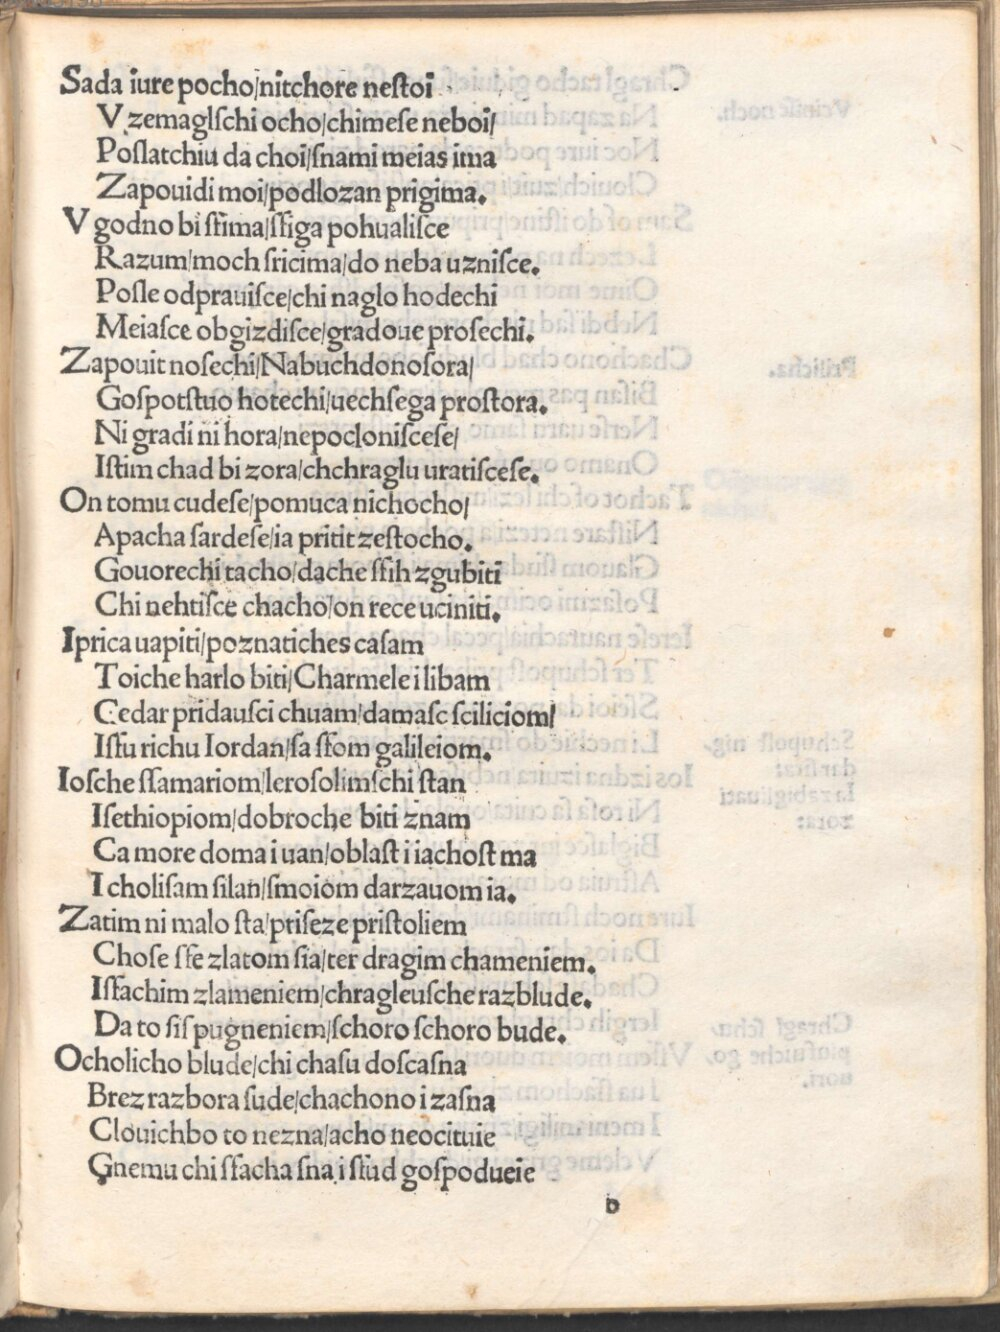 Sada iure pocho/nitchore neſtoi
V zemaglſchi ocho/chimeſe neboi/
Poſlatchiu da choi/ſnami meias ima
Zapouidi moi/podlozan prigima.
V godno bi ſtima/ſſiga pohualiſce
Razum/moch ſricima/do neba uzniſce.
Poſle odprauiſce/chi naglo hodechi
Meiaſce obgizdiſce/gradoue proſechi.
Zapouit noſechi/Nabuchdonoſora/
Goſpotſtuo hotechi/uechſega proſtora.
Ni gradi ni hora/nepocloniſceſe/
Iſtim chad bi zora/chchraglu uratiſceſe.
On tomu cudeſe/pomuca nichocho/
Apacha ſardeſe/ia pritit zeſtocho.
Gouorechi tacho/dache ſſih zgubiti
Chi nehtiſce chacho/on rece uciniti.
Iprica uapiti/poznatiches caſam
Toiche harlo biti/Charmele i libam
Cedar pridauſci chuam/damaſc ſciliciom/
Iſſu richu Iordan/ſa ſſom galileiom.
Ioſche ſſamariom/Ieroſolimſchi ſtan
Iſethiopiom/dobroche biti znam
Ca more doma i uan/oblaſt i iachoſt ma
I choliſam ſilan/ſmoiom darzauom ia.
Zatim ni malo ſta/priſeze priſtoliem
Choſe ſſe zlatom ſia/ter dragim chameniem.
Iſſachim zlameniem/chragleuſche razblude.
Da to ſiſ pugneniem/ſchoro ſchoro bude.
Ocholicho blude/chi chaſu doſcaſna
Brez razbora ſude/chachono i zaſna
Clouichbo to nezna/acho neocituie
Gnemu chi ſſacha ſna i ſſud goſpodueie
b